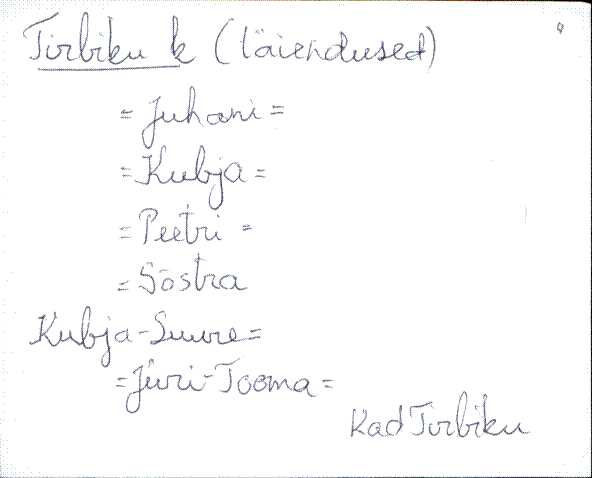 Tirbiku k (läiendused)
= Juhani =
= Kubja =
= Peetri =
= Sõstra
Kubja-Suure =
= Jüri-Tooma =
Kad Tirbiku